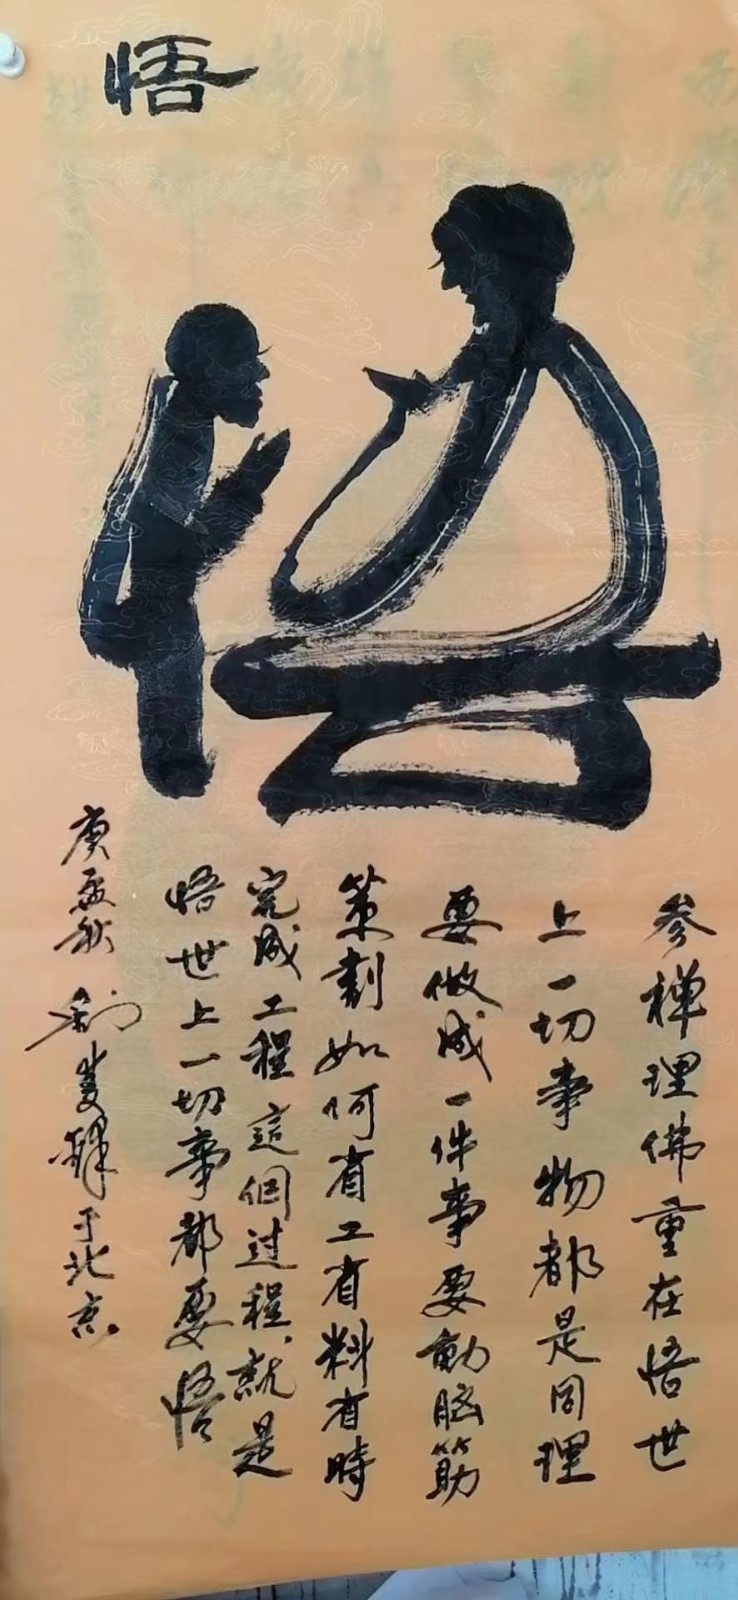 悟
参禅理佛重在悟世
上一切事物都是同理
要做成一件事要動脑筋
策劃如何省工省料省時
完成工程這個过程就是
悟世上一切事都要悟
庚寅秋 于北京